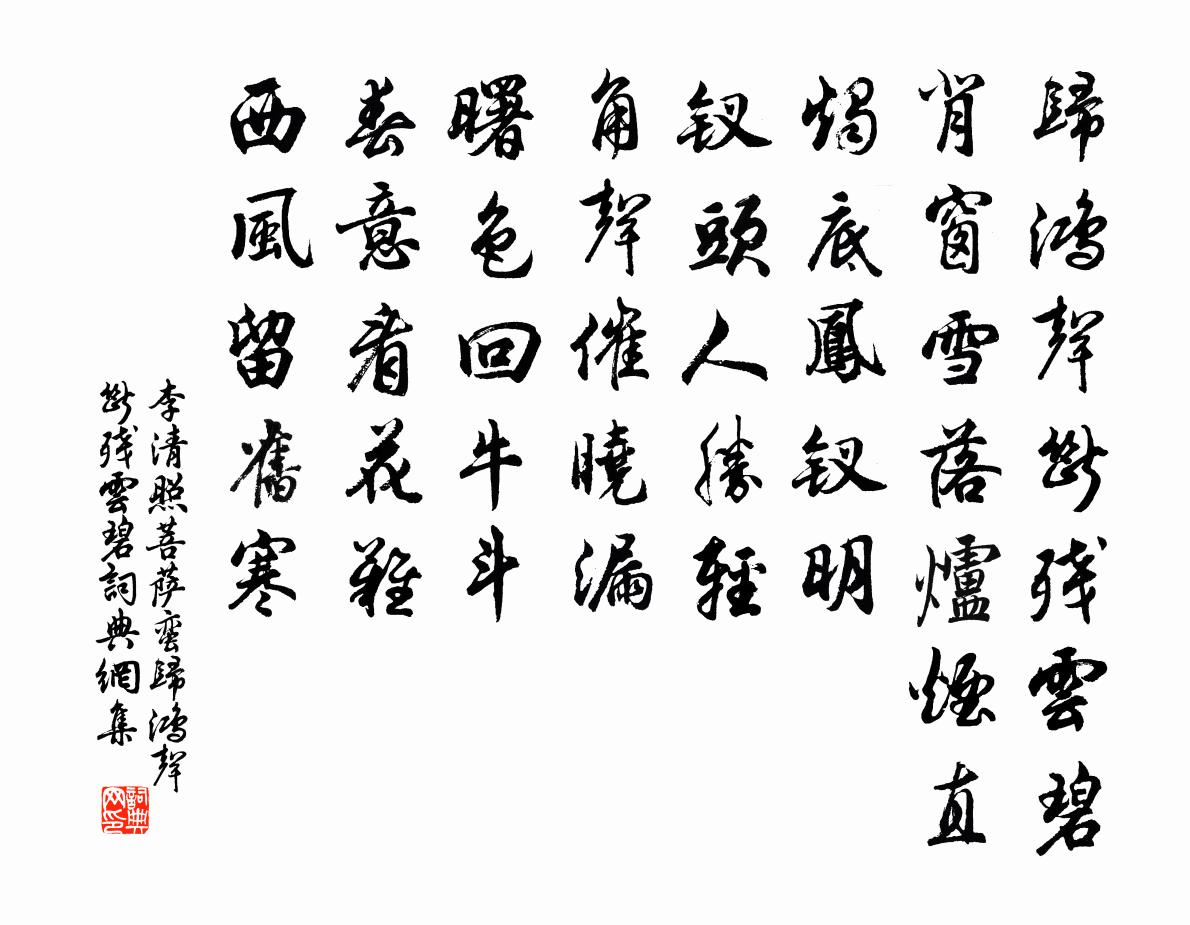 歸鴻聲斷残雲碧
背窗雪落爐煙直
燭底鳳釵明
釵頭人勝輕
角聲催曉漏
曙色回牛斗
春意看花難
西風留舊寒
李清照菩萨蛮歸鴻聲
斷残雲碧詞典網集
詞典
网印